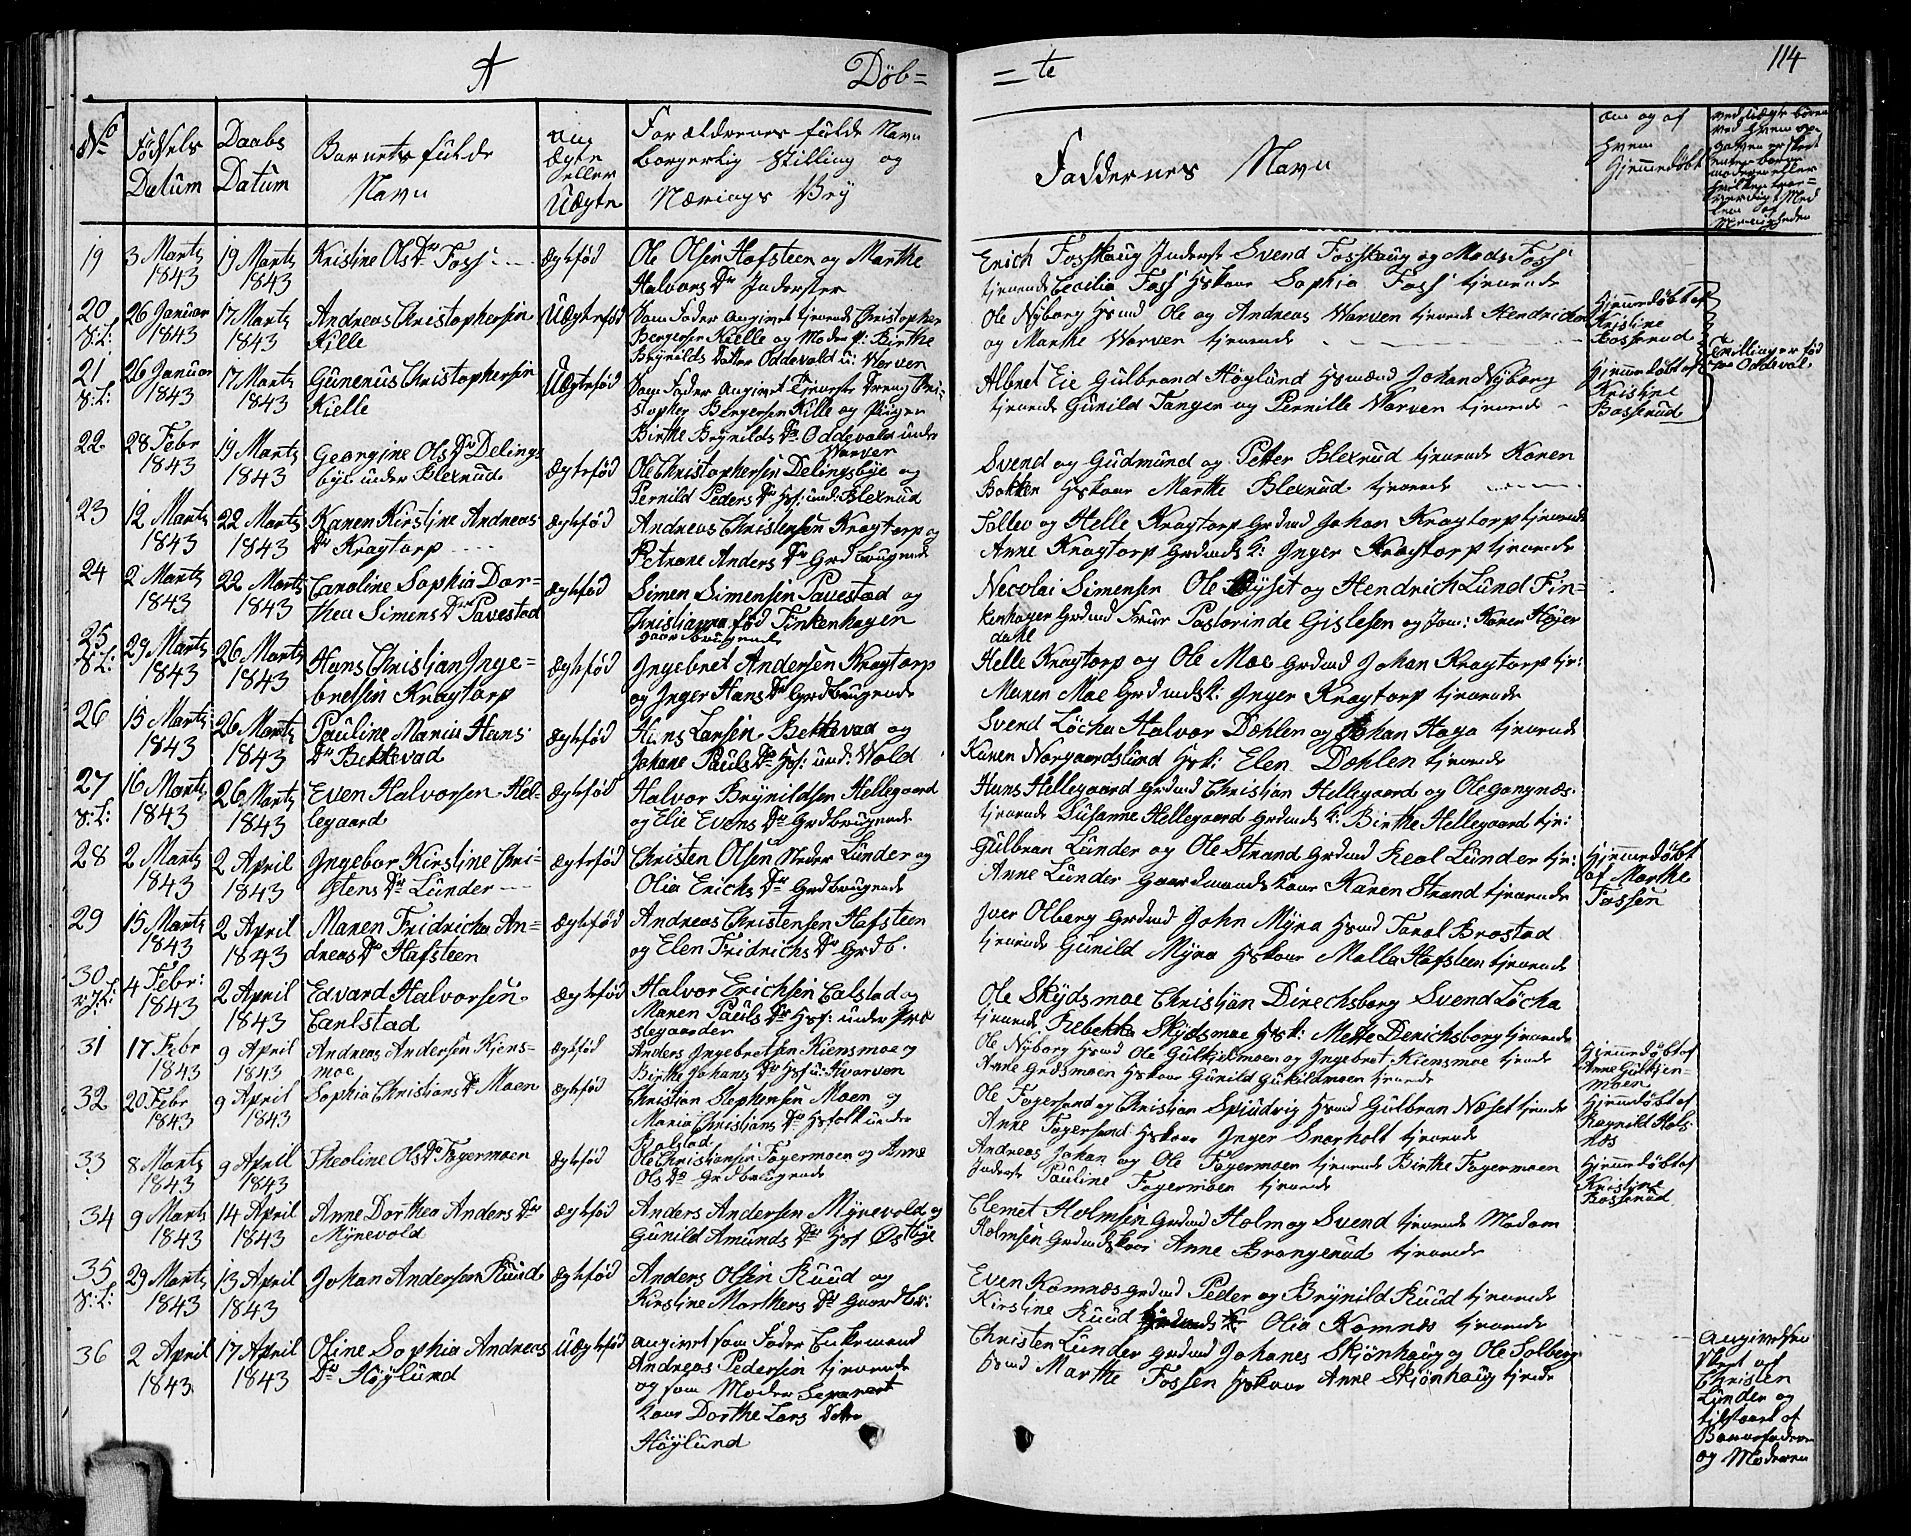 A Döb=
= te 114
No
Födsels Datum
Daabs Datum
Barnets fulde Navn
om Ægte eller Uægte
Forældrenes fulde Navn borgerlig Stilling og Nærings Vej
Faddernes Navn
om og af hvem Hjemmedöbt
19 3 Marts 1843 19 Marts 1843 Kristine Ols Dr Foss ægtefød Ole Olsen Hafsteen og Marthe
Halvors Dr Inderster
Erich Fosshaug Inderst Svend Fosshaug og Mads Foss
tjenende Cecilia Foss Hskone Sophia Foss tjenende
20 S:L: 26 Januar 1843 17 Marts 1843 Andreas Christophersen Kille Uægtefød Som Fader angivet tjenende Christopher
Bergersen Kielle og Moder P: Birthe
Brynilds Datter Oddevald u: Worven
Ole Nyborg Hsmd Ole og Andreas Worven tjenende Hendricka
og Marthe Worven tjenende
Hjemmedöbt af Kristine Bosserud
21 S:L: 26 Januar 1843 17 Marts 1843 Gunerius Christophersen Kielle Uægtefød Som Fader Angivet Tjeneste Dreng Chri-
stopher Bergersen Kille og Pigen
Birthe Brynilds Dr Oddevald under Worven
Albret Eie Gulbrand Höglund Hsmænd Johan Nyborg
tjenende Gunild Tanger og Pernille Worven tjenende
Hjemmedöbt af Kristine Bosserud
Tvillinger fød paa Oddeval
22 28 Febr 1843 19 Marts 1843 Georgine Ols Dr Delings bye under Blexrud ægtefød Ole Christophersen Delingsbye og
Pernild Peders Dr Hsf: und: Blexrud
Svend og Gudmund og Petter Blexrud tjenende Karen
Bakken Hskone Marthe Blexrud tjenende
23 12 Marts 1843 22 Marts 1843 Karen Kirstine Andreas Dr Kragtorp ægtefød Andreas Christensen Kragtorp og
Petrone Anders Dr Grdbrugende
Tollev og Helle Kragtorp Grdmd Johan Kragtorp tjenende
Anne Kragtorp Grdmdsk: Inger Kragtorp tjenende
24 2 Marts 1843 22 Marts 1843 Caroline Sophia Dor-
thea Simens Dr Pavestad ægtefød Simen Simensen Pavestad og
Christianna fød Finkenhagen
gaardbrugende
Necolai Simensen Ole Bysit og Hendrich Lund Fin-
kenhagen Grdmd Fruer Pastorinde Gislesen og Jom: Karen Höjer
dahl
25 S:L: 29 Marts 1843 26 Marts 1843 Hans Christian Inge-
bretsen Kragtorp ægtefød Ingebret Andersen Kragtorp
og Inger Hans Dr Grdbrugende
Helle Kragtorp og Ole Moe Grdmd Johan Kragtorp tje:
Maren Moe Grdmdsk: Inger Kragtorp tjenende
26 15 Marts 1843 26 Marts 1843 Pauline Maria Hans
Dr Bekkevad ægtefød Hans Larsen Bekkevad og
Johane Pauls Dr Hsf: und: Wold
Svend Löcha Halvor Dæhlen og Johan Haga tjenende
Karen Norgaardslund Hsk: Elen Dæhlen tjenende
27 S:L: 16 Marts 1843 26 Marts 1843 Even Halvorsen Hel-
legaard ægtefød Halvor Brynildsen Hellegaard
og Elie Evens Dr Grdbrugende
Hans Hellegaard Grdmd Christian Hellegaard og Ole Gangnæs
tjenende Susanne Hellegaard Grdmdsk: Birthe Hellegaard tje:
28 2 Marts 1843 2 April 1843 Ingebor Kirstine Chri-
stens Dr Lunder ægtefød Christen Olsen Neder Lunder og
Olia Erichs Dr Grdbrugende
Gulbran Lunder og Ole Strand Grdmd Real Lunder tje:
Anne Lunder Gaardmandskone Karen Strand tjenende
Hjemmedöbt af Marthe Fossen
29 15 Marts 1843 2 April 1843 Maren Fridricha An-
dreas Dr Hafsteen ægtefød Andreas Christensen Hafsteen
og Elen Fridrichs Dr Grdb.
Iver Olberg Grdmd John Myra Hsmd Taral Brostad
tjenende Gunild Myra Hskone Malla Hafsteen tjenende
30 4 Febr: 1843 2 April 1843 Edvard Halvorsen
Carlstad ægtefød Halvor Erichsen Calstad og
Maren Pauls Dr Hsf: under Præ
stegaarden
Ole Skydsmoe Christian Direchsborg Svend Löcha
tjenende Rebekka Skydsmoe Hsk: Mette Derichsborg tjenende
31 17 Febr 1843 9 April 1843 Andreas Andersen Kiens-
moe ægtefød Anders Ingebretsen Kiensmoe og
Birthe Johans Dr Hsf u: Hvorven
Ole Nyborg Hsmd Ole Gulkildmoen og Ingebret Kiensmoe tjende
Anne Grdsmoen Hskone Gunild Gukildmoen tjenende
Hjemmedöbt af Anne Gulkjen-
moen
32 20 Febr 1843 9 April 1843 Sophia Christians Dr Moen ægtefød Christian Stephensen Moen og
Maria Christians Dr Hsfolk under
Bolstad
Ole Fagersand og Christian Spiudvig Hsmd Gulbran Næset tjende
Anne Fagersand Hskone Inger Snarholt tjenende
Hjemmedöbt af Ragnild Hols
næs
33 8 Marts 1843 9 April 1843 Theoline Ols Dr Fagermoen ægtefød Ole Christiansen Fagermoen og Anne
Ols Dr Grdbrugende
Andreas Johan og Ole Fagermoen tjenende Birthe Fagermoen
Inderst Pauline Fagermoen tjenende
Hjemmedöbt af Kristine Bosserud
34 9 Marts 1843 14 April 1843 Anne Dorthea Anders Dr
Myrevold ægtefød Anders Andersen Myrevold og
Gunild Amunds Dr Hsf Østbye
Clemet Holmsen Grdmd Holm og Svend tjenende Madam
Holmsen Grdmdskone Anne Brangerud tjenende
35 S:L: 29 Marts 1843 13 April 1843 Johan Andersen Ruud ægtefød Anders Olsen Ruud og
Kirstine Marthers Dr Gaardbr:
Even Komnæs Grdmd Peder og Brynild Ruud tjenende
Kirstine Ruud Grdmdsk Olia Komnæs tjenende
36 2 April 1843 17 April 1843 Oline Sophia Andreas
Dr Höylund Uægtefød angivet som Fader Enkemand
Andreas Pedersen tjenende
og som Moder Separert
kone Dorthe Lars Datter
Höylund
Christen Lunder Grdmd Johanes Skjönhaug og Ole Solberg
Hsmd Marthe Fossen Hskone Anne Skjönhaug tjende
Angivelsen skeet af
Christen
Lunder og
tilstaaet af
Barnefaderen
og Moderen